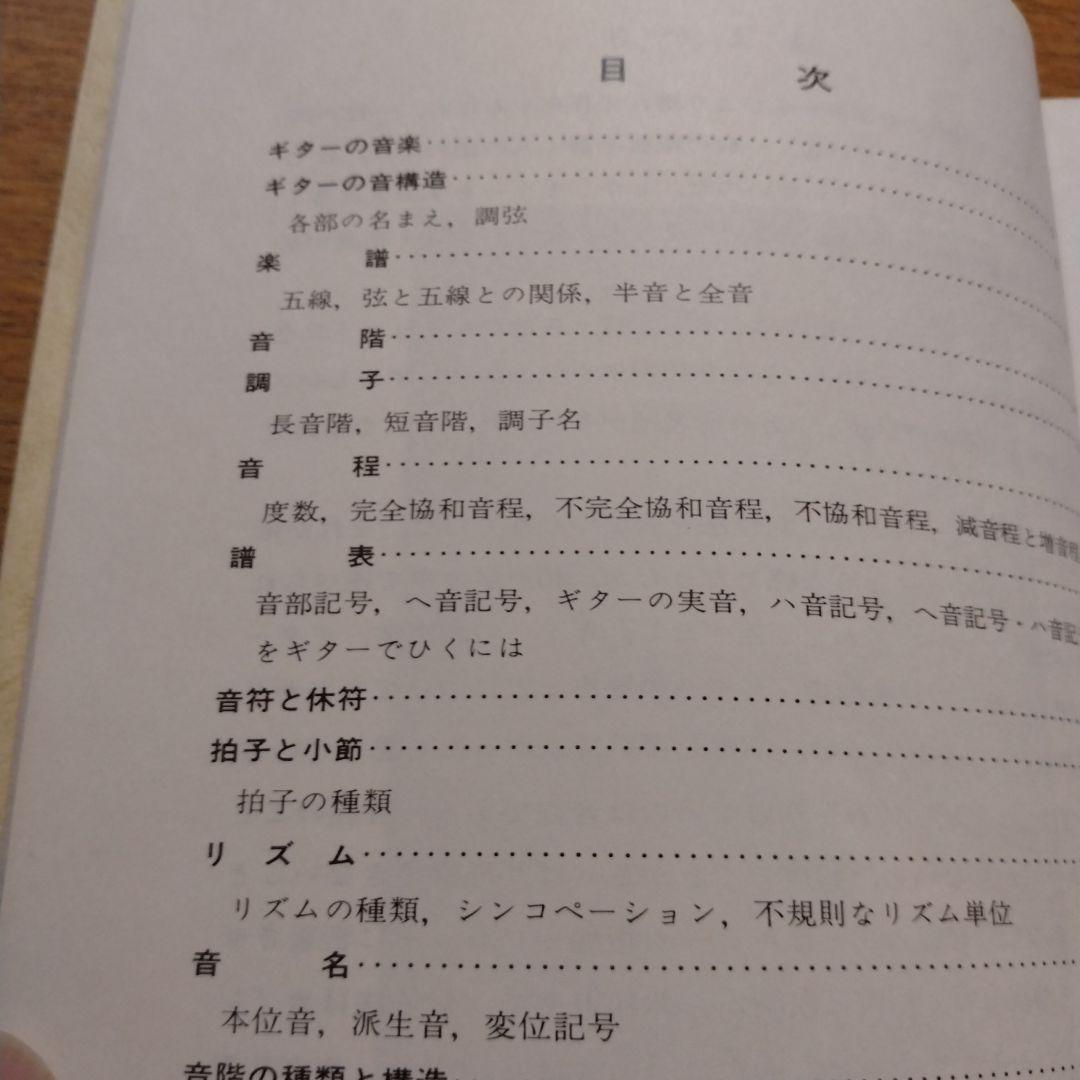 目 次
ギターの音楽
ギターの音構造
各部の名まえ，調弦
楽 譜
五線，弦と五線との関係，半音と全音
音 階
調 子
長音階，短音階，調子名
音 程
度数，完全協和音程，不完全協和音程，不協和音程，減音程と増音程
譜 表
音部記号，ヘ音記号，ギターの実音，ハ音記号，ヘ音記号・ハ音記
をギターでひくには
音符と休符
拍子と小節
拍子の種類
リ ズ ム
リズムの種類，シンコペーション，不規則なリズム単位
音 名
本位音，派生音，変位記号
音階の種類と構造